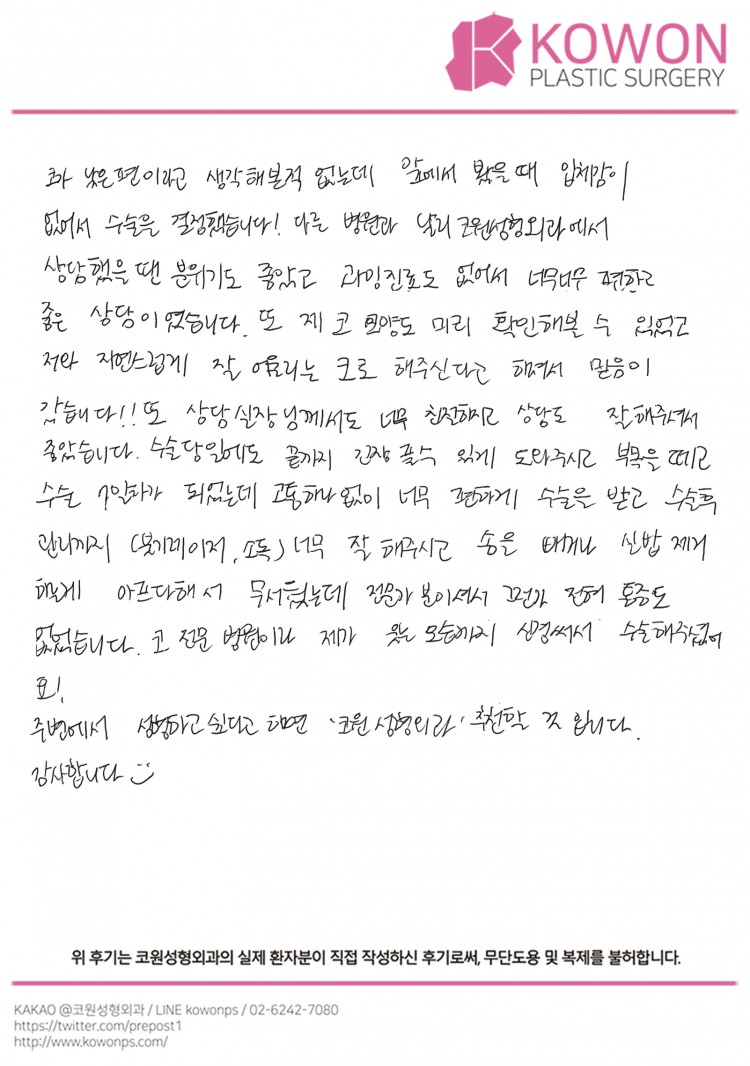 KOWON
PLASTIC SURGERY
코가 낮은편이라고 생각해본적 없는데 앞에서 봤을때 입체감이
없어서 수술을 결정했습니다! 다른 병원과 달리 코원성형외과에서
상담했을땐 분위기도 좋았고 과잉진료도 없어서 너무너무 편하고
좋은 상담이었습니다. 또 제 코 모양도 미리 확인해볼 수 있었고
저와 자연스럽게 잘 어울리는 코로 해주신다고 하셔서 믿음이
갔습니다!! 또 상담실장님께서도 너무 친절하시고 상담도 잘해주셔서
좋았습니다. 수술당일에도 끝까지 긴장 풀수 있게 도와주시고 부목을 떼고
수술 7일차가 되었는데 고통하나없이 너무 편하게 수술을 받고 수술후
관리까지 (붓기레이저, 소독) 너무 잘 해주시고 솜을 빼거나 실밥 제거
하는게 아프다해서 무서웠는데 전문가 분이셔서 그런가 전혀 통증도
없었습니다. 코 전문 병원이라 제가 웃는 모습까지 신경써서 수술해주셨어
요!
주변에서 성형하고싶다고 하면 '코원성형외과' 추천할 것 입니다.
감사합니다
위 후기는 코원성형외과의 실제 환자분이 직접 작성하신 후기로써, 무단도용 및 복제를 불허합니다.
KAKAO @코원성형외과 / LINE kowonps / 02-6242-7080
https://twitter.com/prepost1
http://www.kowonps.com/